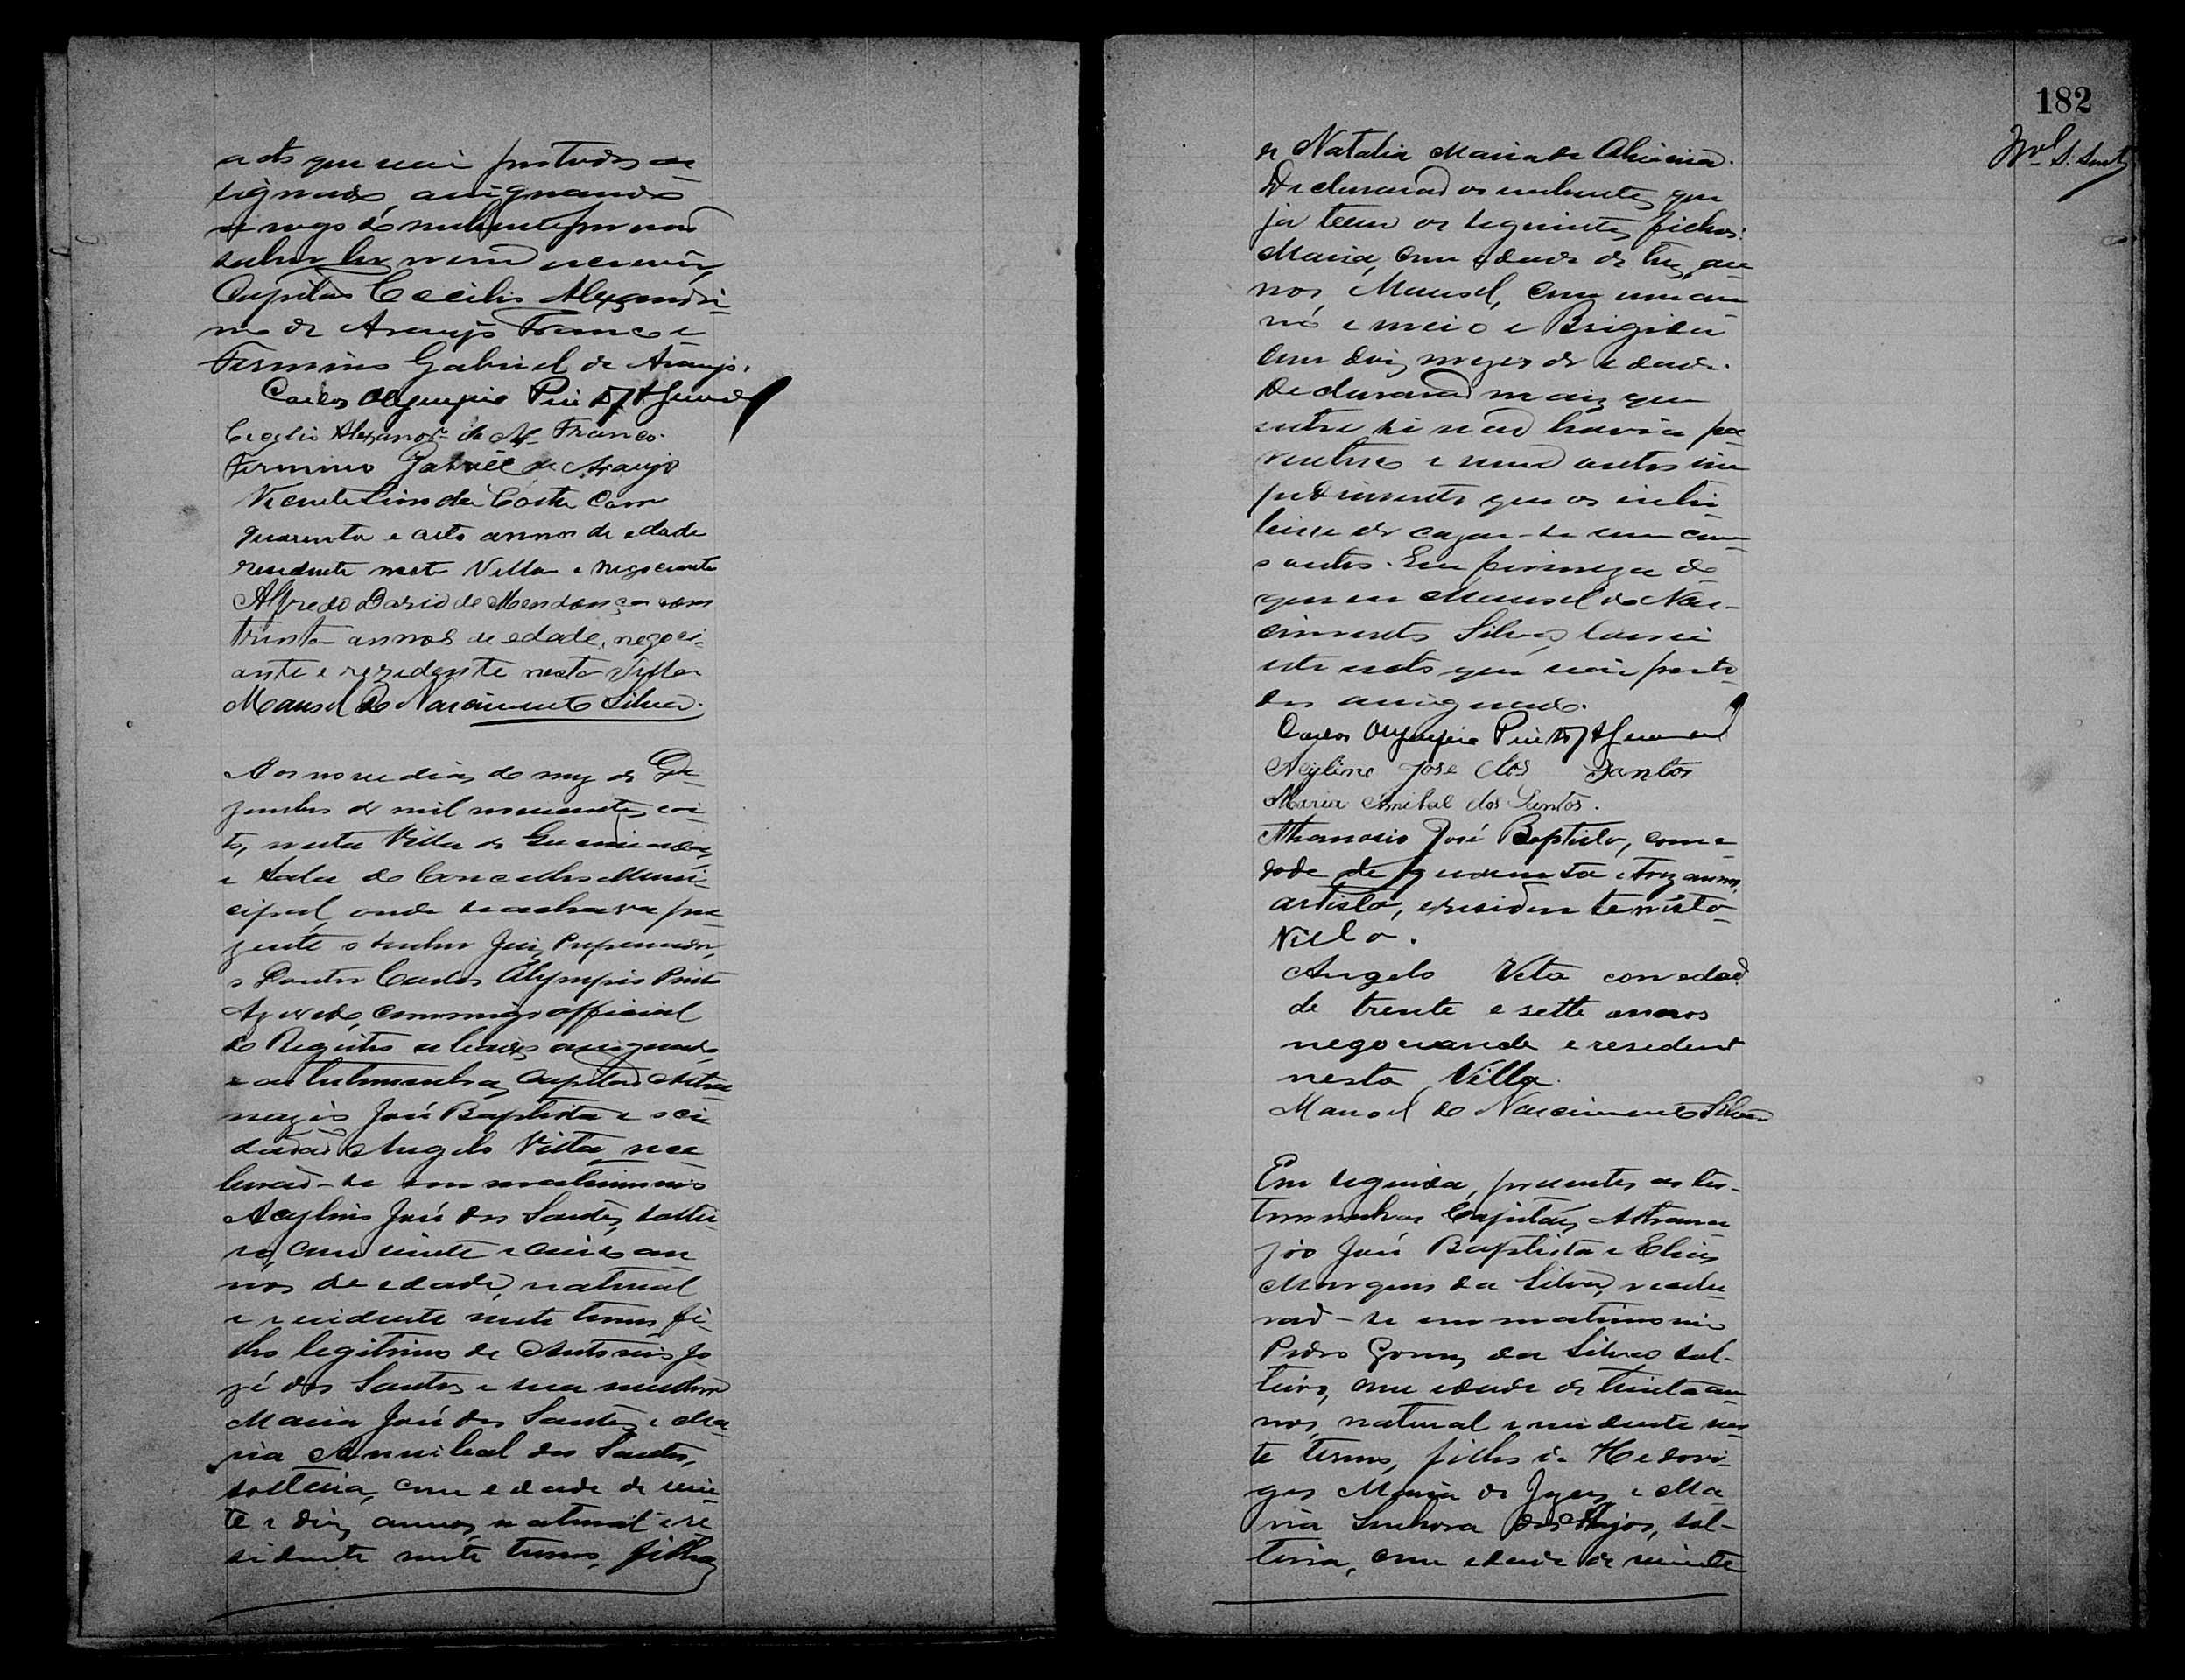 acto que vai por todos as
signado, assignando
a rogo do nubente por não
saber ler nem escrever,
Capitão Cecilio Alexandri-
no de Araujo Franco e
Fermino Gabriel de Araujo.
Carlos Olympio Pinto
Cecilio Alexandr. de Franco.
Fermino Gabriel de Araujo
Vicente Lins da Costa com
quarenta e oito annos de edade
residente nesta Villa e negociante
Alfredo Dario de Mendonça com
trinta annos de edade, negoci-
ante e rezidente nesta Villa
Manoel do Nascimento Silva.
Aos nove dias do mez de De
zembro de mil novecentos e oi
to, nesta Villa de
e Sala do Concelho Muni-
cipal, onde se achava pre
zente o senhor Juiz Preparador,
o Doutor Carlos Olympio Pinto
Azevedo, commigo official
do Registro abaixo assignado
e as testemunhas, Capitão Atha
nazio José Baptista e o ci
dadão Angelo Vitta, rece
berão-se em matrimonio
Acylino José dos Santos, soltei-
ro, com vinte e cinco an
nos de edade, natural
e residente neste termo, fi-
lho legitimo de Antonio Jo
zé dos Santos e sua mulher
Maria José dos Santos, e Ma
ria Annibal dos Santos,
solteira, com edade de vin-
te e dois annos, natural e re
sidente neste termo, filha
182
de Natalia Maria de Oliveira.
Declararão os nubentes que
já teem os seguintes filhos:
Maria, com edade de trez an
nos, Manoel, com um an
no e meio e Brigida
com dois mezes de edade.
Declararão mais que
entre si não havia pa
rentesco e nem outro im
pedimento que os inhi-
bisse de cazar-se um com
o outro. Em firmeza do
que eu Manoel do Nas-
cimento Silva, lavrei
este acto que vai por to
dos assignado.
Carlos Olympio Pinto
Acylino Jose dos Santos
Maria Anibal dos Santos.
Athanasio José Baptista, com e
dade de quarenta e trez annos,
artista, e residente nesta
Villa.
Angelo Vita con edad
de trente e sette annos
negociande e resident
nesta Villa.
Manoel do Nascimento Silva
Em seguida, presentes as tes-
temunhas Capitão Athana
zio José Baptista e Elias
Marques da Silva, recebe
rão-se em matrimonio
Pedro Gomes da Silva sol-
teiro, com edade de trinta an
nos, natural e residente nes
te termo, filho de Hedovi-
ges Maria de Jezus, e Ma-
ria Senhora dos Anjos, sol-
teira, com edade de vinte